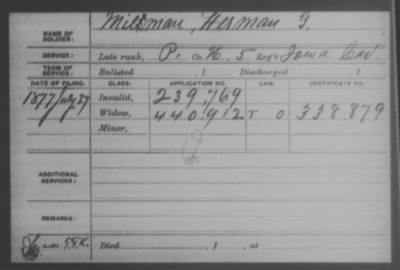 NAME OF SOLDIER: Milsman, Herman G.
SERVICE: Late rank, P. Co. K, 5 Reg't Iowa Cav.
TERM OF SERVICE: Enlisted , 1 Discharged , 1
DATE OF FILING. CLASS. APPLICATION NO. LAW. CERTIFICATE NO.
1877 July 27 Invalid, 239,769
Widow, 440,912 T O 338.879
Minor,
ADDITIONAL SERVICES:
REMARKS:
Died , 1 , at